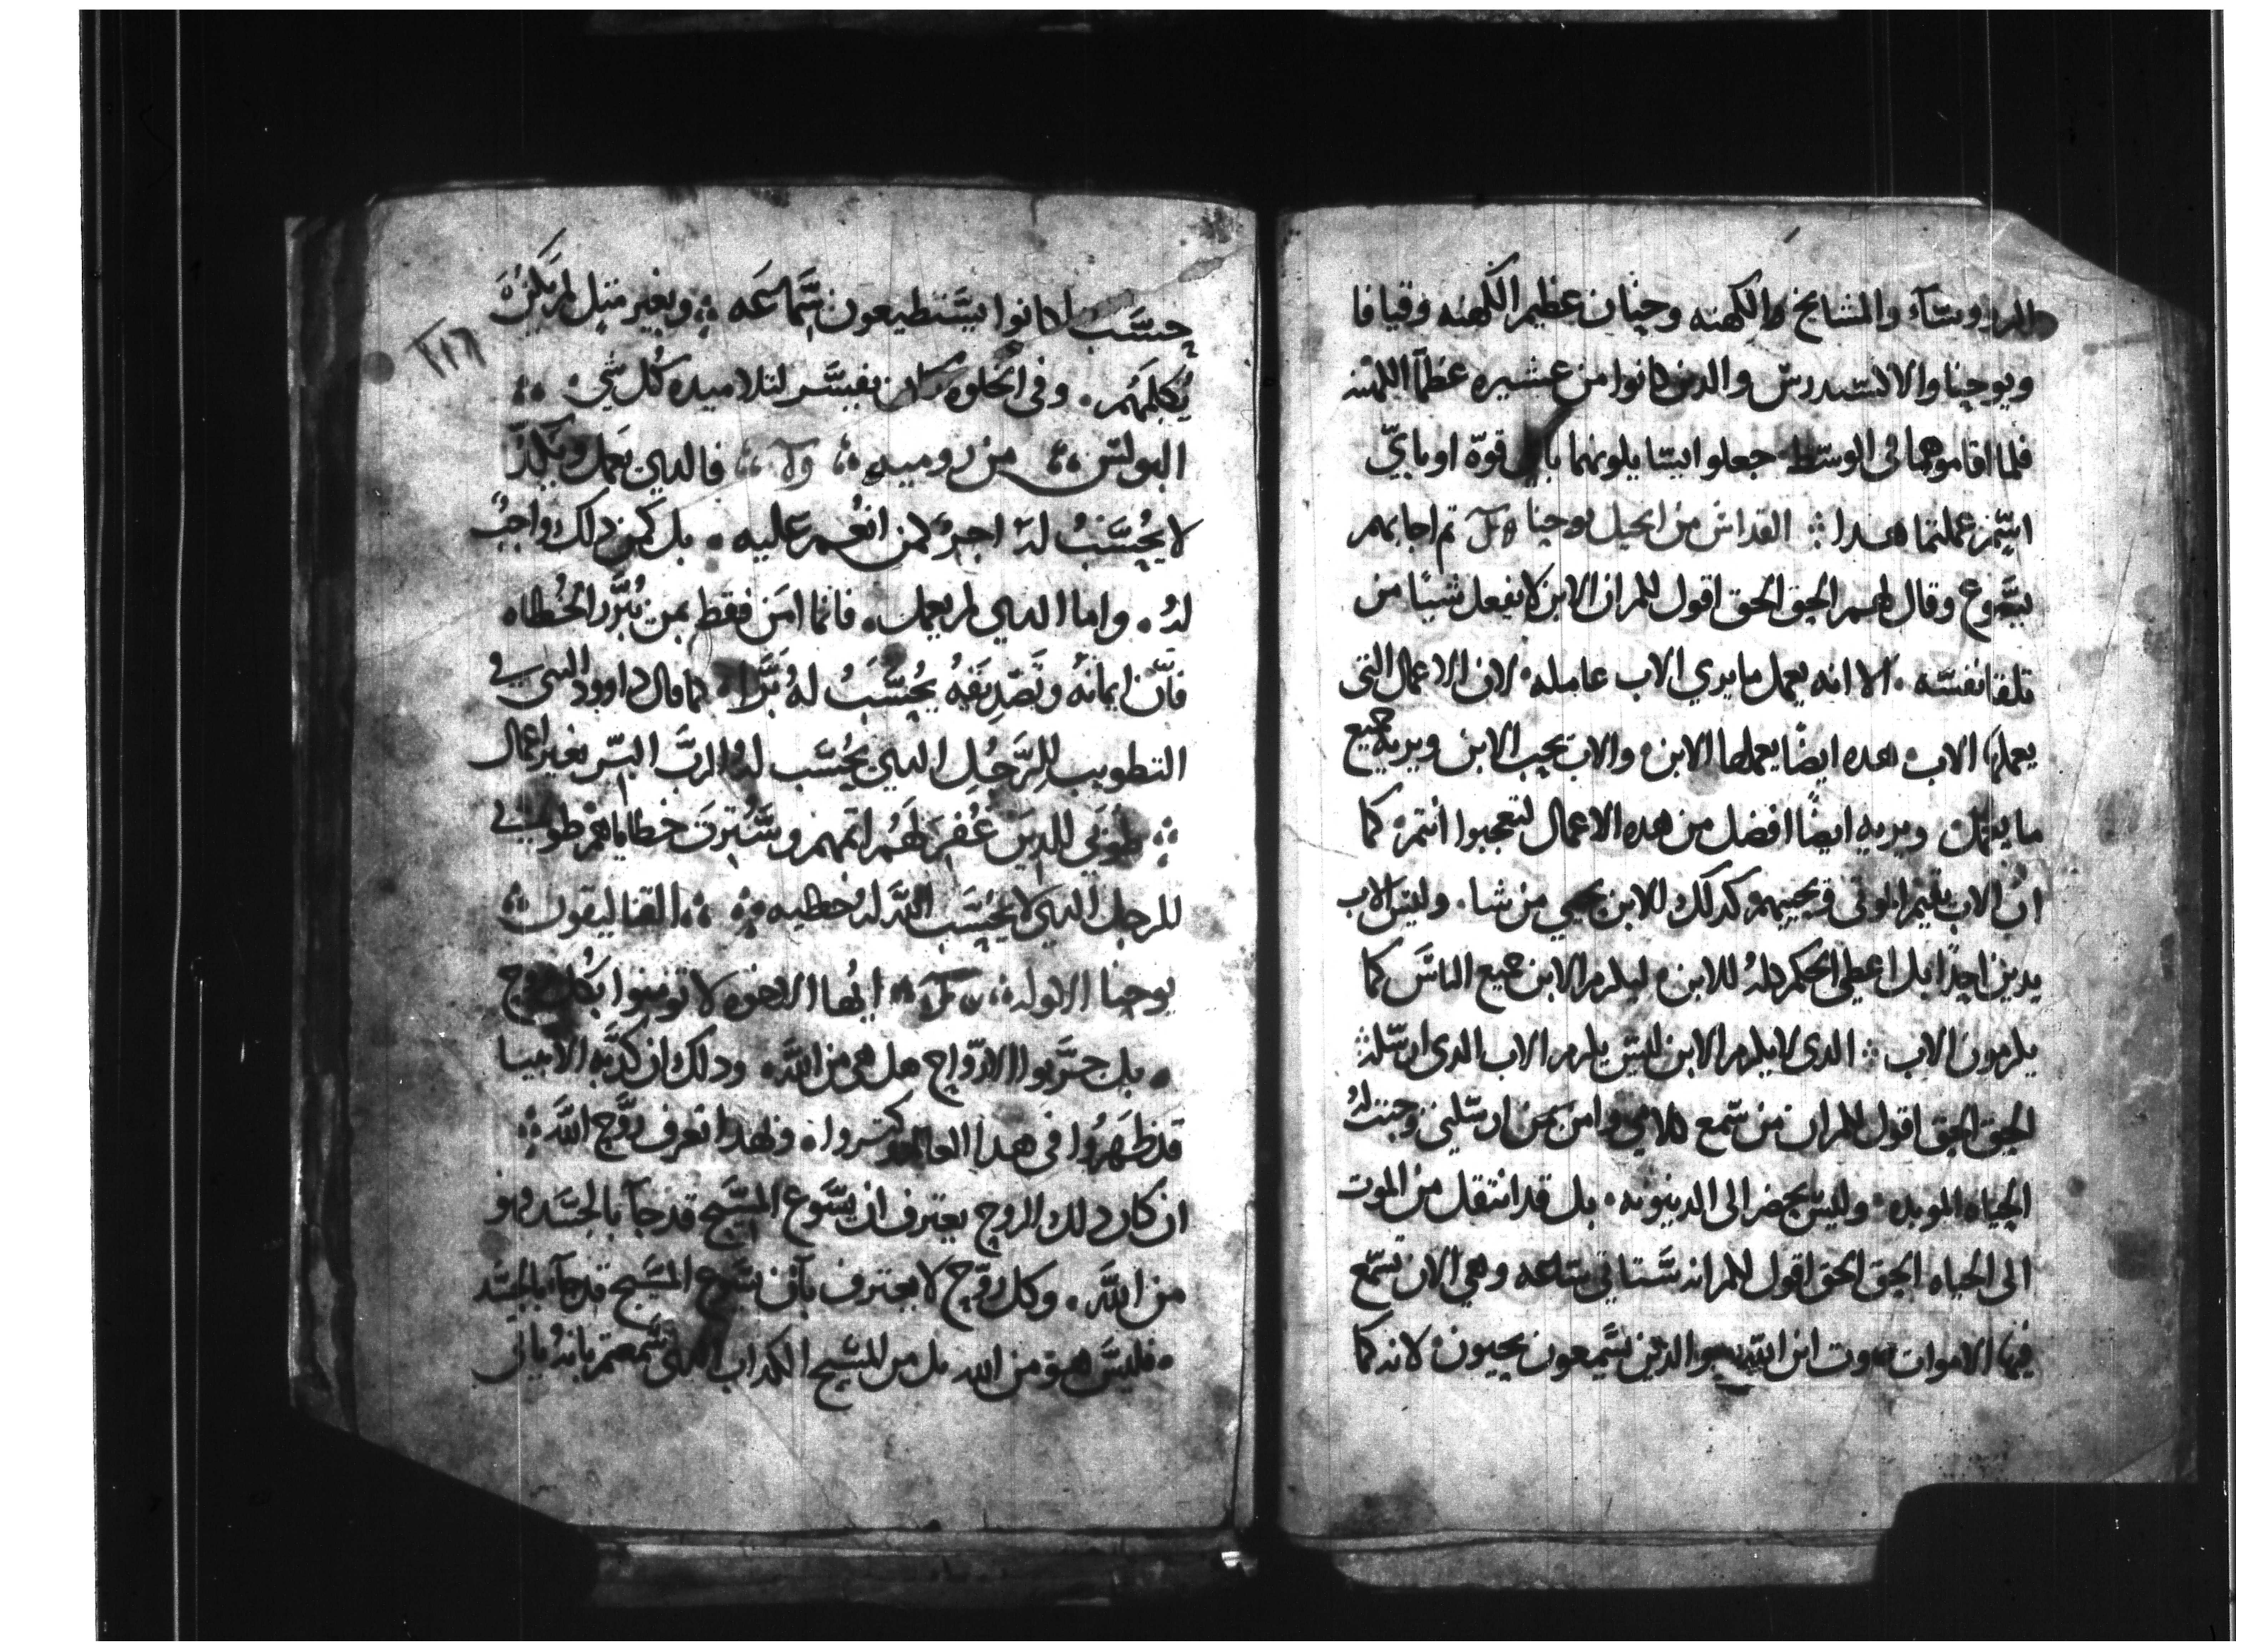 الروسآء والمشايخ والكهنه وحنان عظيم الكهنه وقيافا
ويوحنا والالكسندرس والدين كانوا من عشيره عظمآ الكهنه
فلما اقاموهما في الوسط جعلوا يسايلونهما باي قوة او باي
اسم عملتما هدا ∴ القداس من انجيل يوحنا تم اجابهم
يسوع وقال لهم الحق الحق اقول لكم ان الابن لا يفعل شييا من
تلقا نفسه ٠ الا انه يعمل ما يري الاب عامله ٠ لان الاعمال التي
يعملها الاب هده ايضًا يعملها الابن ٠ والاب يحب الابن ويريه جميع
ما يعمل ويريه ايضًا افضل من هده الاعمال لتعجبوا انتم ٠ كما
ان الاب يقيم الموتي ويحييهم وكدلك الابن يحيي من شا ٠ وليس الاب
يدين احدًا بل اعطي الحكم كله للابن ٠ ليكرم الابن جميع الناس كما
يكرمون الاب ∴ الدي لا يكرم الابن ليس يكرم الاب الدي ارسله
الحق الحق اقول لكم ان من سمع كلامي وامن بمن ارسلني وجبت له
الحياه الموبده ٠ وليس يحضر الى الدينونه ٠ بل قد انتقل من الموت
الى الحياه الحق الحق اقول لكم انه ستاتي ساعه وهي الان تسمع
فيها الاموات صوت ابن الله والدين يسمعون يحيون ٠ لانه كما
حسب ما كانوا يستطيعون سماعه ∴ وبغير متل لم يكن
يُكلمهُم ٠ وفي الخلوه كان يفسّر لتلاميده كُل شي ∴
البولس ∴ من روميه ∴ فالدي يعمل ويكد
لا يُحسَبُ له اجره كمن انعُم عليه ٠ بل كمن دلك واجبٌ
لهُ ٠ واما الدي لم يعمل ٠ فانما امن فقط بمن يُبرّر الخُطاه
فان ايمانهُ وتصديقهُ يُحسَبُ لهُ برًا ٠ كما قال داوود النبي في
التطويب للرَّجُلِ الدي يُحسَب لهُ الربّ البِرّ بغير اعمال
∴ طوبَي للدين غُفِرَ لهُم اتمهم وسُتِرت خطاياهم طوبي
للرجل الدي لا يحسَب اللَّه لهُ خطيه ∴ القتاليقون ∴
يوحنا الاوله ∴ ايُها الاخوه لا تومنوا بكُل روح
٠ بل جرّبوا الارواح هل هي من اللَّه ٠ ودلك ان كدبه الانبيا
قد ظهرُوا في هدا العالم وكتروا ٠ وبهدا تعرف روح اللَّه ∴
ان كان دلك الروح يعترف ان يسَوع المسيح قد جآ بالجسَد وهو
من اللَّه ٠ وكل روح لا يعترف بان يسَوع المسيح قد جآ بالجسَد
٠ فليسَ هو من الله بل من المسيح الكداب الدي سمعتم بانهُ ياتي